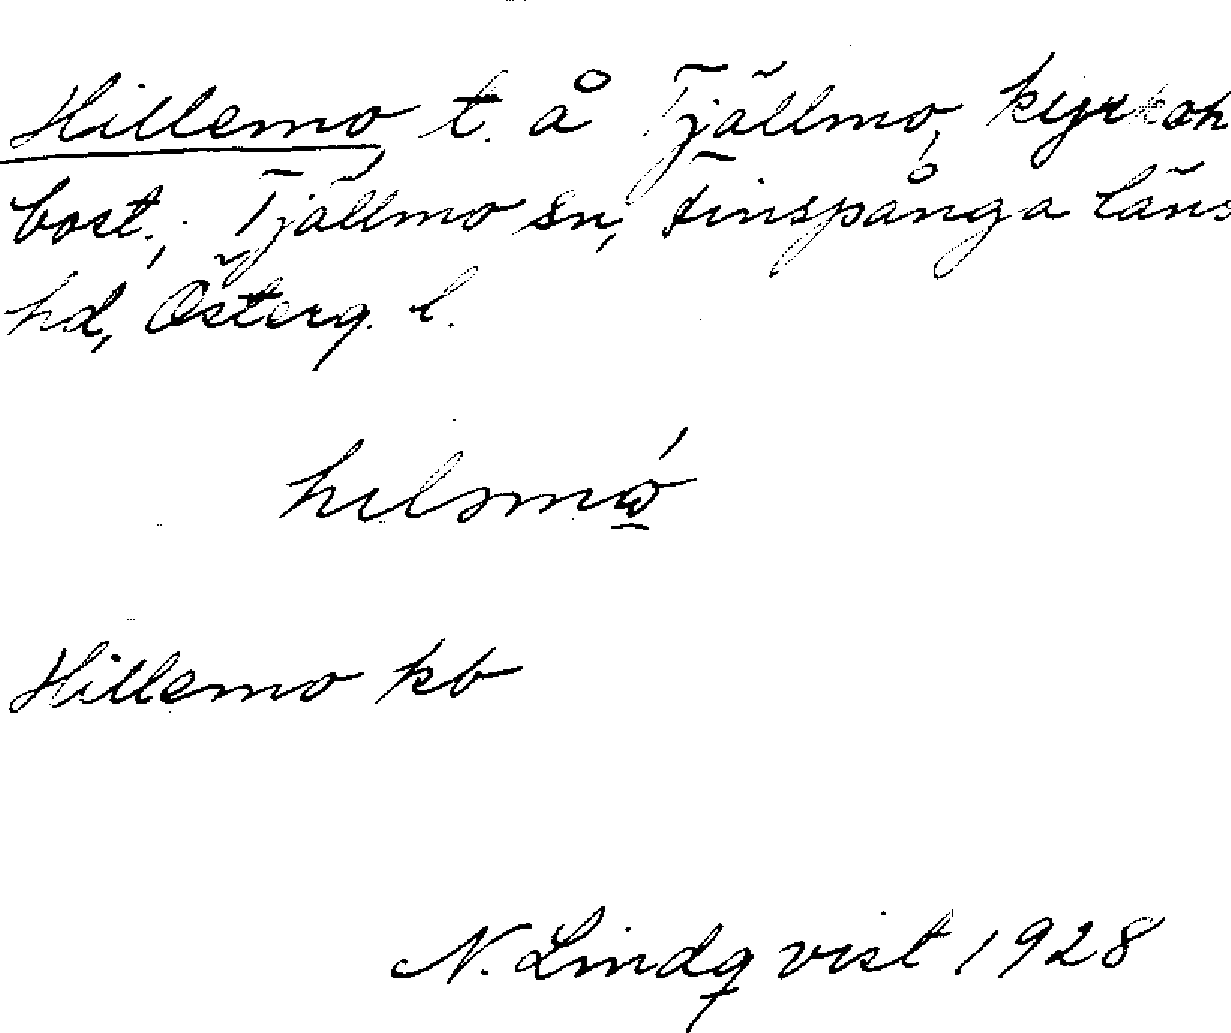 Hillemo t. å Tjällmo, kyrkoh
bost., Tjällmo sn, Finspånga läns
hd, Österg. l.
Hillemo kb
N. Lindqvist 1928